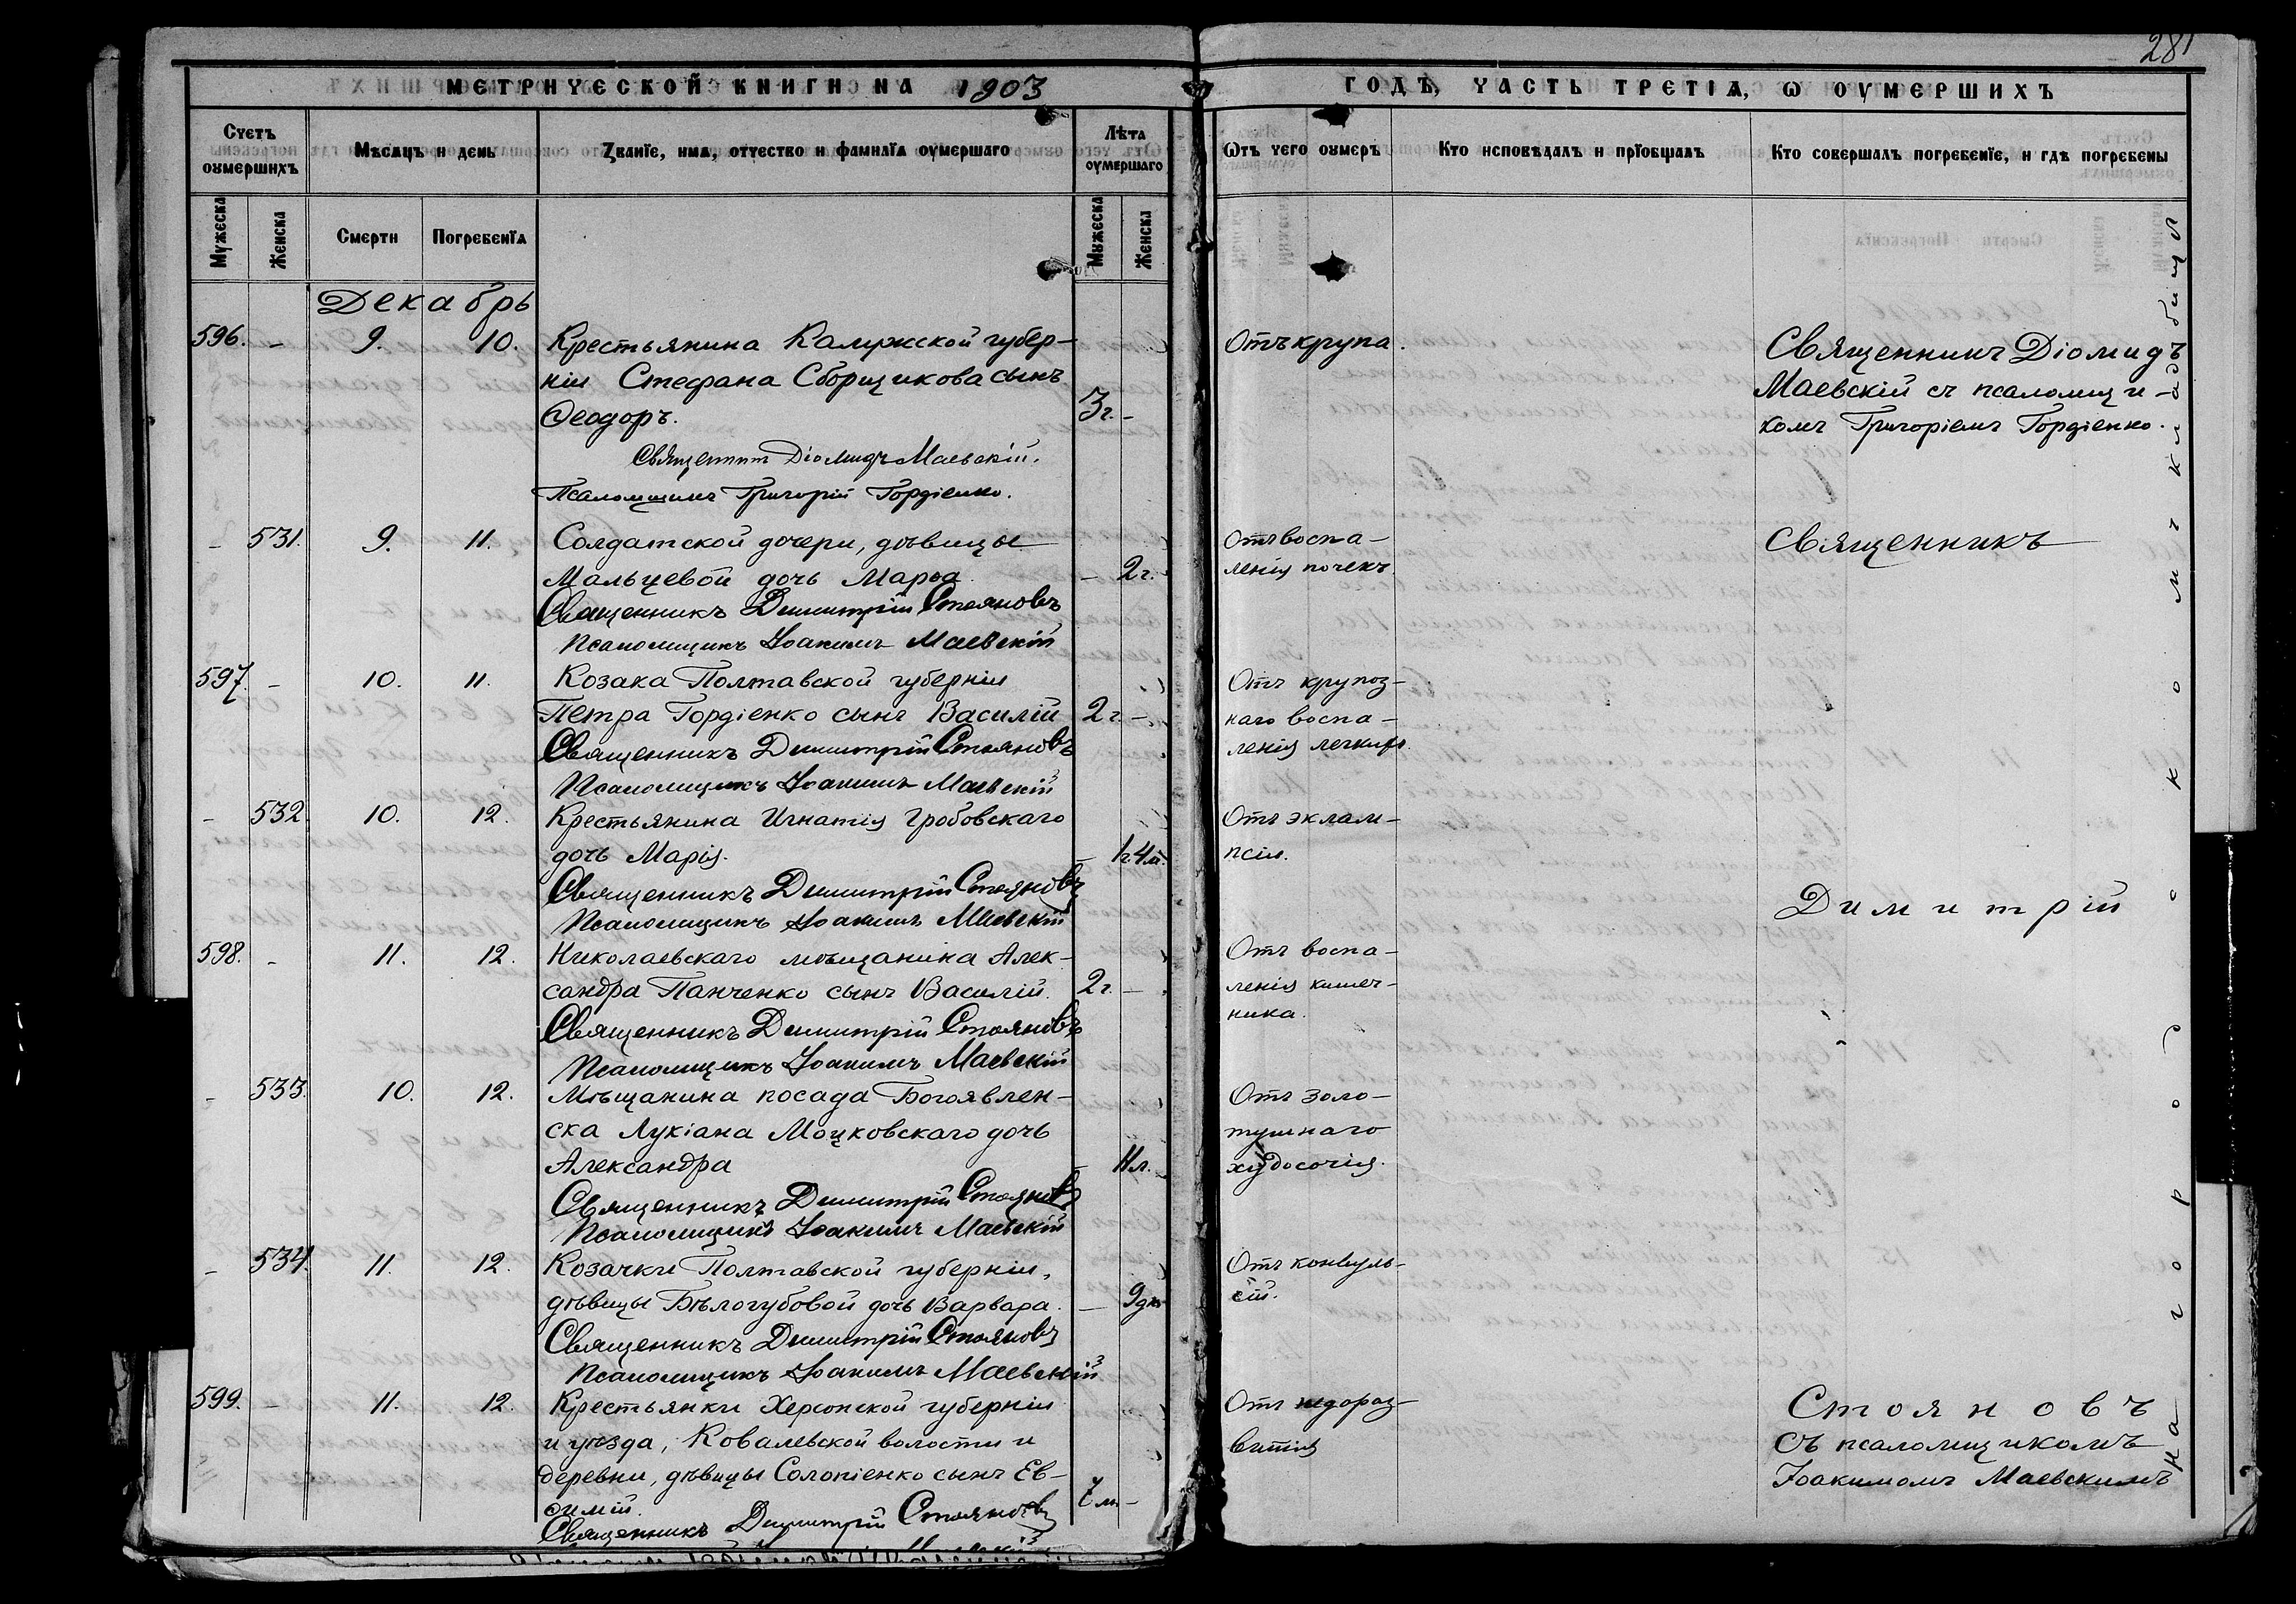 281
МЕТРИЧЕСКОЙ КНИГИ НА 1903 ГОДЪ, ЧАСТЬ ТРЕТІѦ, Ѡ ОУМЕРШИХЪ
Счетъ оумершихъ
Мѣсяцъ и день
Званїе, имѧ, отчество и фамилїѧ оумершаго
Лѣта оумершаго
Ѿтъ чего оумеръ
Кто исповѣдалъ и прїобщалъ
Кто совершалъ погребенїе, и гдѣ погребены
Мужеска
Женска
Смерти
Погребенїѧ
Мужеска
Женска
Декабрь
596. - 9. 10. Крестьянина Калужской губер-
ніи Стефана Сборщикова сынъ
Ѳеодоръ. 3г. -
Отъ крупа.
Священникъ Діомидъ
Маевскій съ псаломщи-
комъ Григоріемъ Гордіенко.
Священникъ Діомидъ Маевскій.
Псаломщикъ Григорій Гордіенко.
- 531. 9. 11. Солдатской дочери, дѣвицы
Мальцевой дочь Марѳа. - 2г.
Отъ воспа-
ленія почекъ
Священникъ
Священникъ Димитрій Стояновъ
Псаломщикъ Іоакимъ Маевскій
597. - 10. 11. Козака Полтавской губерніи
Петра Гордіенко сынъ Василій 2г. -
Отъ крупоз-
наго воспа-
ленія легкихъ.
Священникъ Димитрій Стояновъ
Псаломщикъ Іоакимъ Маевскій
- 532. 10. 12. Крестьянина Игнатія Гробовскаго
дочь Марія. - 1г.4м.
Отъ эклам-
псіи.
Священникъ Димитрій Стояновъ
Псаломщикъ Іоакимъ Маевскій
Димитрій
598. - 11. 12. Николаевскаго мѣщанина Алек-
сандра Панченко сынъ Василій. 2г. -
Отъ воспа-
ленія кишеч-
ника.
Священникъ Димитрій Стояновъ
Псаломщикъ Іоакимъ Маевскій
- 533. 10. 12. Мѣщанина посада Богоявлен-
ска Лукіана Моцковскаго дочь
Александра - 11л.
Отъ золо-
тушнаго
худосочія.
Священникъ Димитрій Стояновъ
Псаломщикъ Іоакимъ Маевскій
- 534. 11. 12. Козачки Полтавской губерніи,
дѣвицы Бѣлогубовой дочь Варвара. - 9дн.
Отъ конвуль-
сій.
Священникъ Димитрій Стояновъ
Псаломщикъ Іоакимъ Маевскій
599. - 11. 12. Крестьянки Херсонской губерніи
и уѣзда, Ковалевской волости и
деревни, дѣвицы Солопіенко сынъ Ев-
ѳимій. 7м. -
Отъ недораз-
витія
Стояновъ
съ псаломщикомъ
Іоакимомъ Маевскимъ
Священникъ Димитрій Стояновъ
На городскомъ кладбищѣ